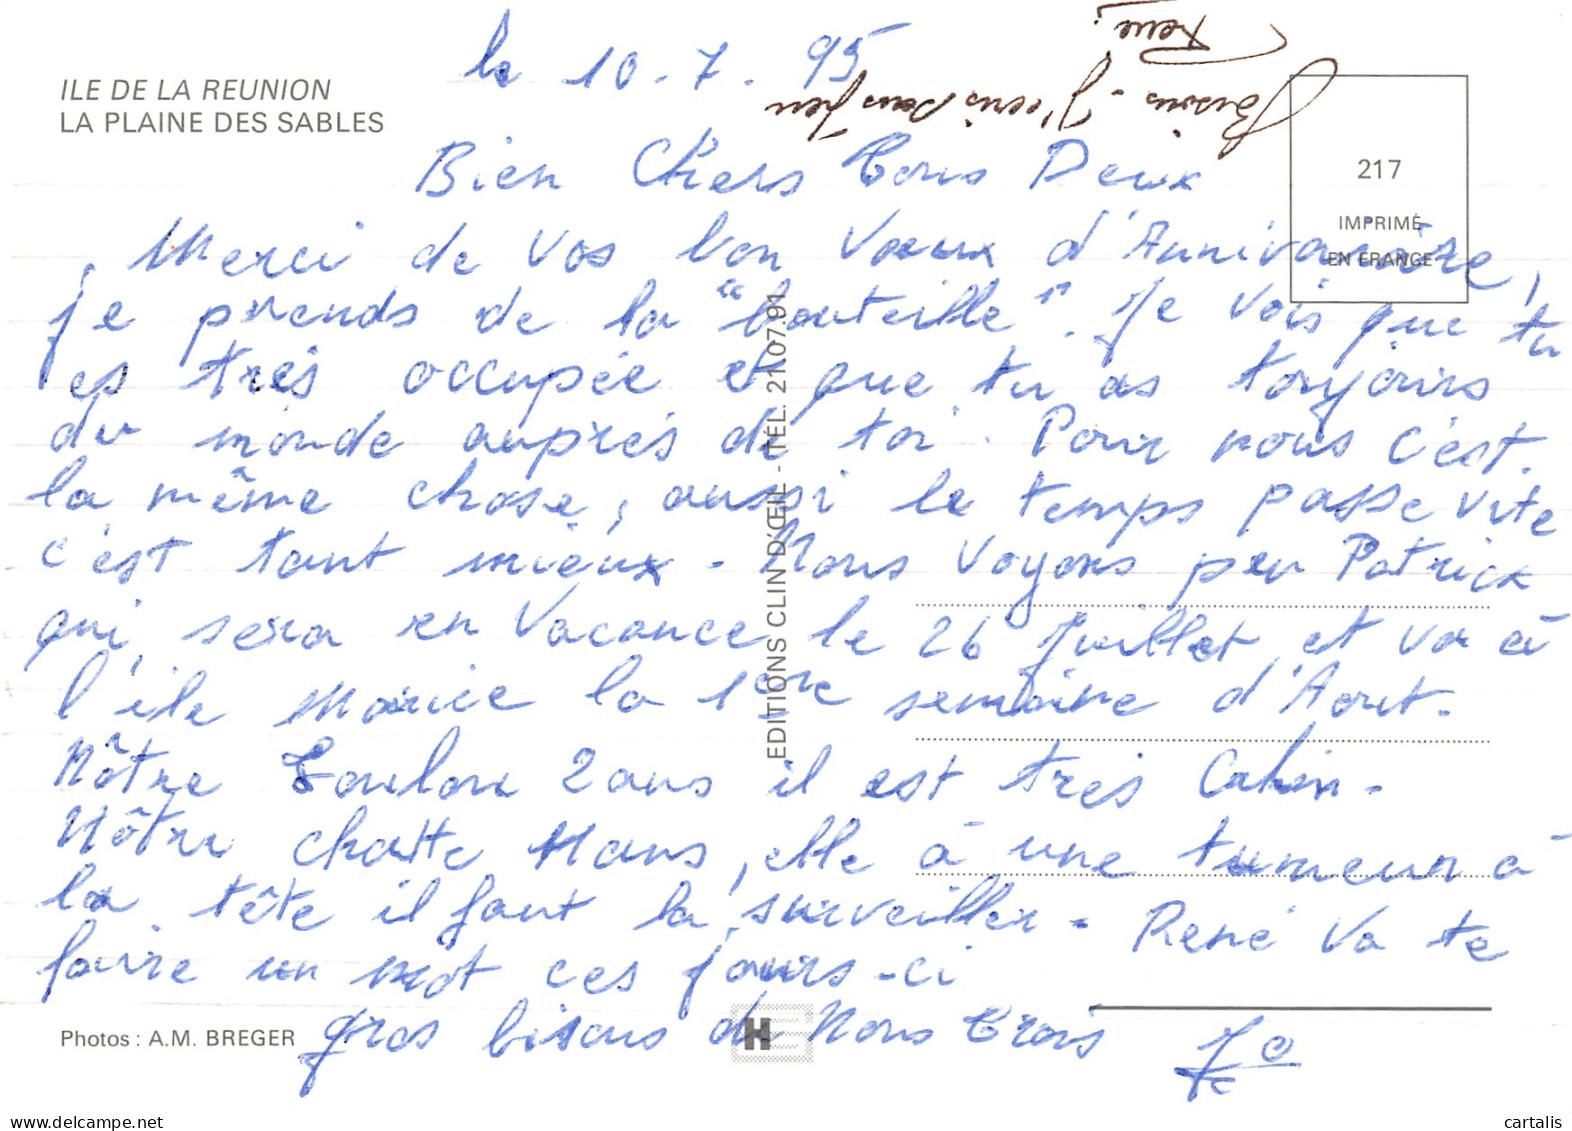 ILE DE LA REUNION
LA PLAINE DES SABLES
le 10.7.95
Bisous - J'ecris dans peu
René.
217
IMPRIMÉ
EN FRANCE
Bien Chers Tous Deux
Merci de vos bon Vœux d'Annivairaire,
je prends de la "bouteille". Je vois que tu
es très occupée et que tu as toujours
du monde auprés de toi. Pour nous c'est.
la même chose, aussi le temps passe vite
c'est tant mieux - Nous voyons peu Patrick
qui sera en Vacance le 26 Juillet et va à
l'ile Maurice la 1ère semaine d'Aout.
Nôtre Loulou 2 ans il est très Calin.
Nôtre chatte, elle à une tumeur à
la tête il faut la surveiller. René va te
faire un mot ces jours-ci
gros bisous de Nous Trois
EDITIONS CLIN D'ŒIL - TÉL. 21.07.91
Photos : A.M. BREGER
H
www.delcampe.net
cartalis